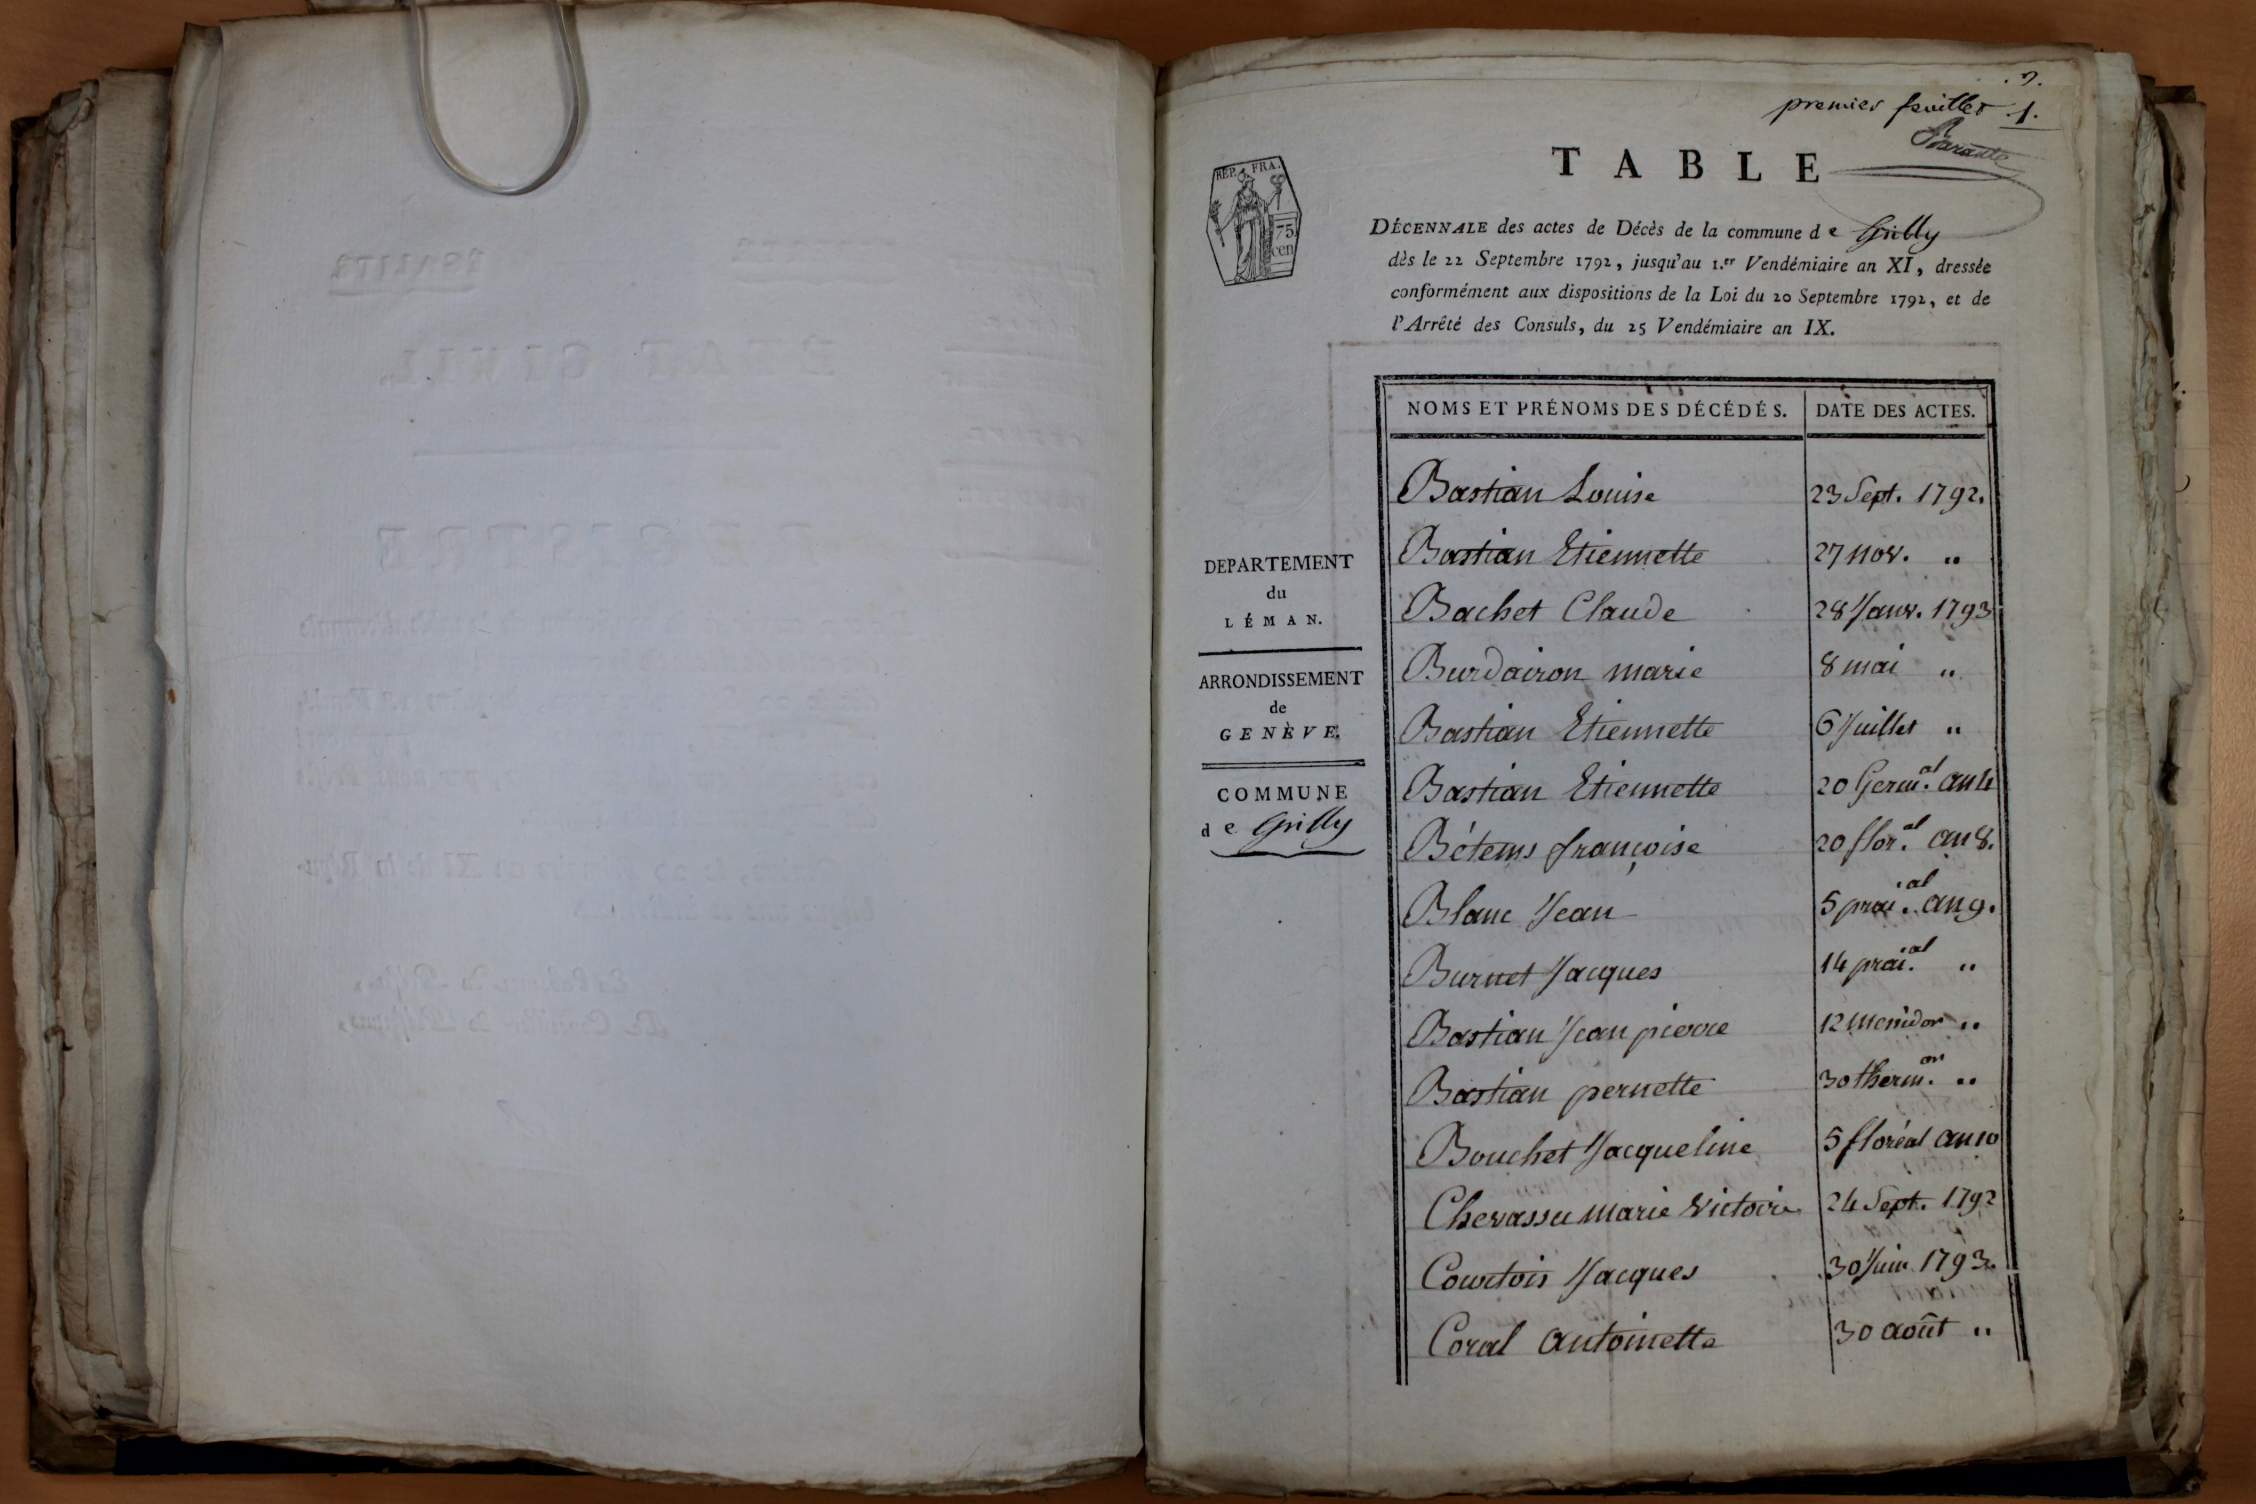 . 7.
premier feuillet 1.
Barante
RÉP. FRA.
75.
cen
TABLE
DÉCENNALE des actes de Décès de la commune de Grilly
dès le 22 Septembre 1792, jusqu'au 1.er Vendémiaire an XI, dressée
conformément aux dispositions de la Loi du 20 Septembre 1792, et de
l'Arrêté des Consuls, du 25 Vendémiaire an IX.
DEPARTEMENT
du
LÉMAN.
ARRONDISSEMENT
de
GENÈVE.
COMMUNE
de Grilly
NOMS ET PRÉNOMS DES DÉCÉDÉS. DATE DES ACTES.
Bastian Louise 23 Sept. 1792.
Bastian Etiennette 27 nov. "
Bachet Claude 28 Janv. 1793
Burdairon marie 8 mai "
Bastian Etiennette 6 Juillet "
Bastian Etiennette 20 Germ.al an 4
Bétems françoise 20 flor.al an 8.
Blanc Jean 5 prai.al an 9.
Burnet Jacques 14 prai.al "
Bastian Jean pierre 12 messidor "
Bastian pernette 30 therm.or "
Bouchet Jacqueline 5 floréal an 10
Chevassu marie Victoire 24 Sept. 1792
Courtois Jacques 30 Juin 1793.
Coral antoinette 30 août "
EGALITÉ
ETAT CIVIL,
REGISTRE